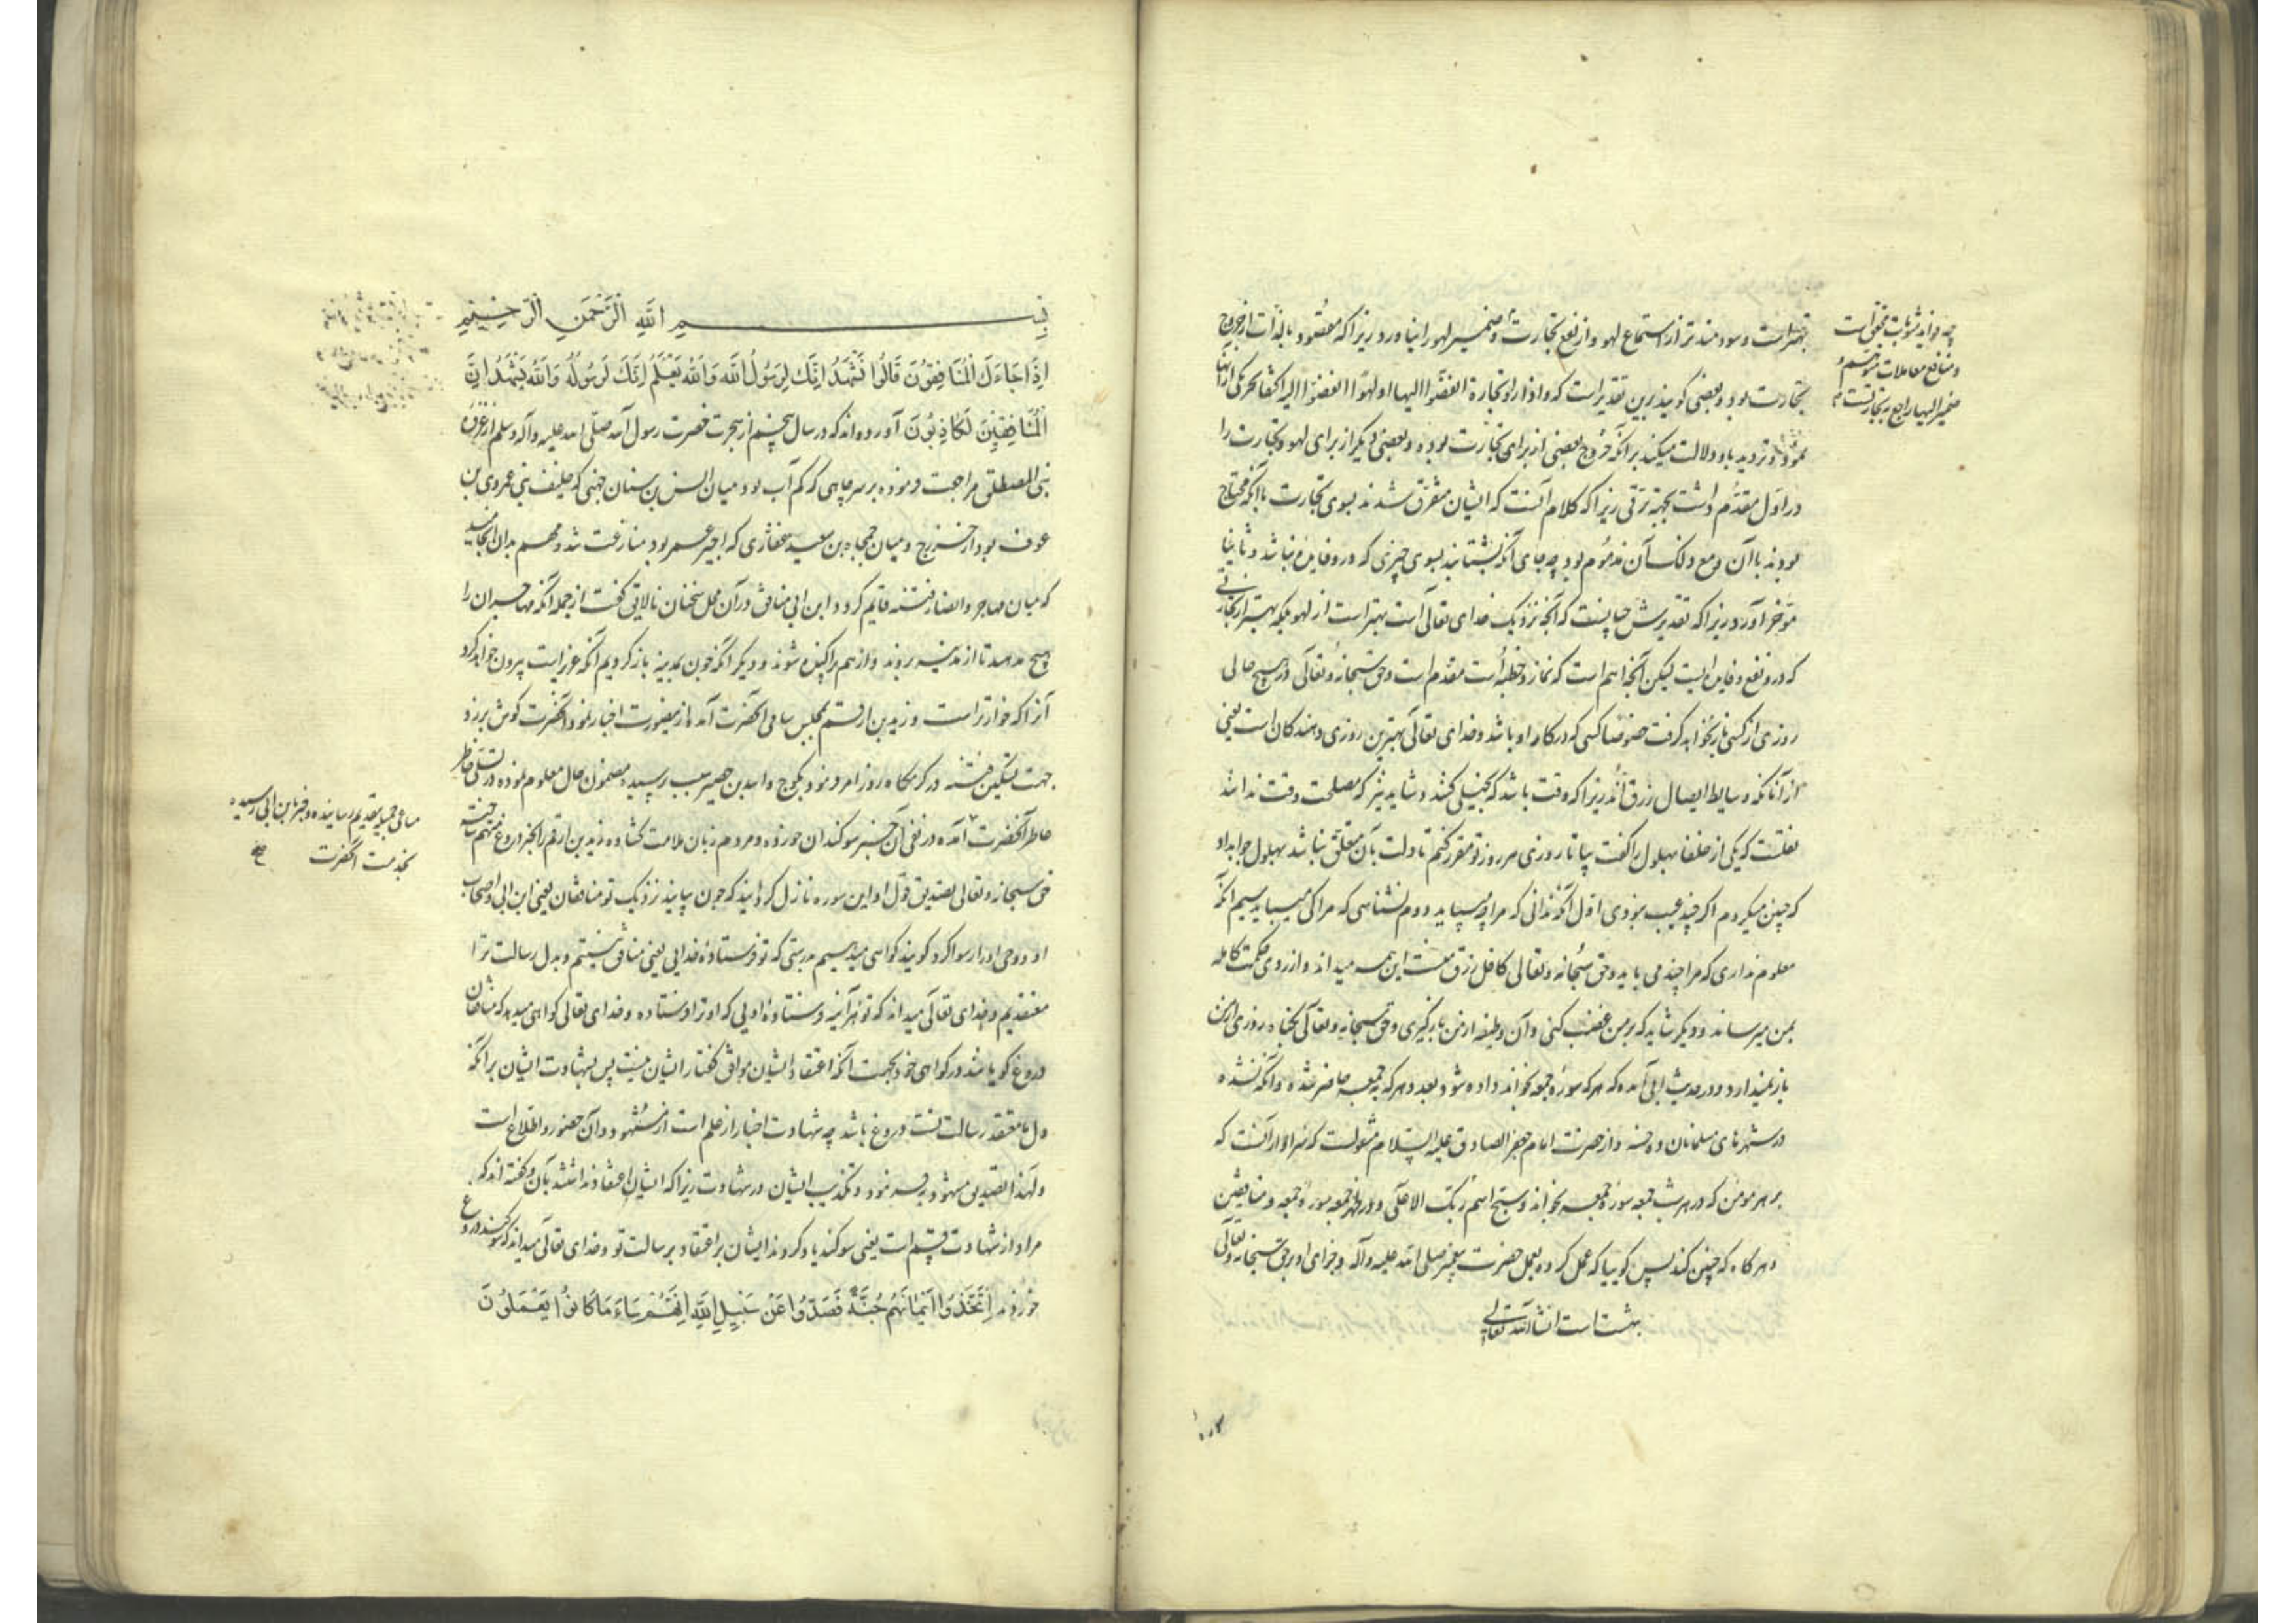 بهتر است و سودمندتر از استماع لهو و از نفع تجارت و ضمیر لهو را نیاورد زیرا که مقصود بالذات از خروج
تجارت بود و بعضی گویند برین تقدیر است که و اذا راوا تجارة انفضوا الیها او لهوا انفضوا الیه اکتفا بحرکی از آنها
نمود و تردید باو دلالت میکند بر آنکه خروج بعضی از برای تجارت بوده و بعضی دیگر از برای لهو و تجارت را
در اول مقدم داشت بجهة ترقی زیرا که کلام آنست که ایشان متفرق شدند بسوی تجارت با آنکه محتاج
بودند بآن و مع ذلک آن مذموم بود چه جای آنکه بشتابند بسوی چیزی که درو فایده نباشد و ثانیا
مؤخر آورد زیرا که تقدیرش چنینست که آنچه نزدیک خدای تعالی است بهتر است از لهو بلکه بهتر از تجارتی
که درو نفع و فایده ایست لیکن آنچه اهم است که نماز و خطبه است مقدم است و حق سبحانه و تعالی در هیچ حالی
روزی از کسی باز نخواهد گرفت خصوصا کسی که در کار او باشد و خدای تعالی بهترین روزی دهندگان است یعنی
از آنانکه وسایط ایصال رزق اند زیرا که وقت باشد که بخیلی کنند و شاید نیز که مصلحت وقت ندانند
نقلست که یکی از خلفا بهلول را گفت بیا تا روزی هر روز تو مقرر کنم تا دلت بآن متعلق نباشد بهلول جواب داد
که چنین میکردم اگر چند عیب نبودی اول آنکه ندانی که مرا چه میباید دوم نشناسی که مرا کی میباید سیم آنکه
معلوم نداری که مرا چند می باید و حق سبحانه و تعالی کافل رزق منست این همه میداند و از روی حکمت کامله
بمن میرساند و دیگر شاید که بر من غضب کنی و آن وظیفه از من بازگیری و حق سبحانه و تعالی بگناه روزی از من
باز نمیدارد و در حدیث ابی آمده که هر که سوره جمعه بخواند داده شود بعدد هر که به جمعه حاضر شده و آنکه نشده
در شهرهای مسلمانان ده حسنه و از حضرت امام جعفر الصادق علیه السلام منقولست که سزاوار آنست که
بر هر مومن که در هر شب جمعه سوره جمعه بخواند و سبح اسم ربک الاعلی و در ظهر جمعه سوره جمعه و منافقین
و هر گاه که چنین کند پس گوییا که عمل کرده بعمل حضرت پیغمبر صلی الله علیه و آله و جزای او بر حق سبحانه و تعالی
بهشت است انشاء الله تعالی
چه فواید مثوبات محقق است
و منافع معاملات متوهم و
ضمیر الیها راجع به تجارتست
بسم الله الرحمن الرحیم
اِذَا جَاءَكَ الْمُنَافِقُونَ قَالُوا نَشْهَدُ اِنَّكَ لَرَسُولُ اللَّهِ وَاللَّهُ يَعْلَمُ اِنَّكَ لَرَسُولُهُ وَاللَّهُ يَشْهَدُ اِنَّ
الْمُنَافِقِينَ لَكَاذِبُونَ آورده اند که در سال پنجم از هجرت حضرت رسول صلی الله علیه و آله وسلم از غزوه
بنی المصطلق مراجعت فرموده بر سر چاهی که کم آب بود میان انس بن سنان جهنی که حلیف بنی عمرو بن
عوف بود از خزرج و میان جهجاه بن سعید غفاری که اجیر عمر بود منازعت شد و مهم بدان انجامید
که میان مهاجر و انصار فتنه قایم گردد ابن ابی منافق در آن محل سخنان نالایق گفت از جمله آنکه مهاجران را
هیچ مدهید تا از مدینه بروند و از هم پراکنده شوند و دیگر آنکه چون بمدینه بازگردیم آنکه عزیز است بیرون خواهد کرد
آنرا که خوارتر است و زید بن ارقم بمجلس سامی آنحضرت آمد از ینصورت اخبار نمود آنحضرت گوش برزد
جهت تسکین فتنه در گرمگاه روز امر فرمود بکوچ و اسید بن حضیر سبب پرسیده مضمون حال معلوم نموده در تسلی خاطر
خاطر آنحضرت آمده در نفی آن خبر سوگندان خورده و مردم زبان ملامت گشاده زید بن ارقم را بخبر دروغ متهم ساختند
حق سبحانه و تعالی تصدیق قول او این سوره نازل گردانید که چون بیایند نزدیک تو منافقان یعنی ابن ابی و اصحاب
او گویند گواهی میدهیم بدرستی که تو فرستاده خدایی یعنی منافق نیستیم و بدل رسالت ترا
معتقدیم و خدای تعالی میداند که تو هر آینه فرستاده اویی که او ترا فرستاده و خدای تعالی گواهی میدهد که منافقان
دروغ گویا باشند در گواهی خود بجهت آنکه اعتقاد ایشان موافق گفتار ایشان نیست پس بشهادت ایشان بر آنکه
دل ما معتقد رسالت تست دروغ باشد چه شهادت اخبار از علم است از شهود و آن حضور و اطلاع است
و لهذا تصدیق مشهود به فرمود و تکذیب ایشان در شهادت زیرا که ایشان اعتقاد نداشتند بآن و گفته اند که
مراد از شهادت قسم است یعنی سوگند یاد کردند ایشان بر اعتقاد برسالت تو و خدای تعالی میداند که سوگند دروغ
خوردند اِتَّخَذُوا اَيْمَانَهُمْ جُنَّةً فَصَدُّوا عَنْ سَبِيلِ اللَّهِ اِنَّهُمْ سَاءَ مَا كَانُوا يَعْمَلُونَ
مساعی جمیله بتقدیم رسانیده و خبر بابن ابی رسیده
بخدمت آنحضرت صح